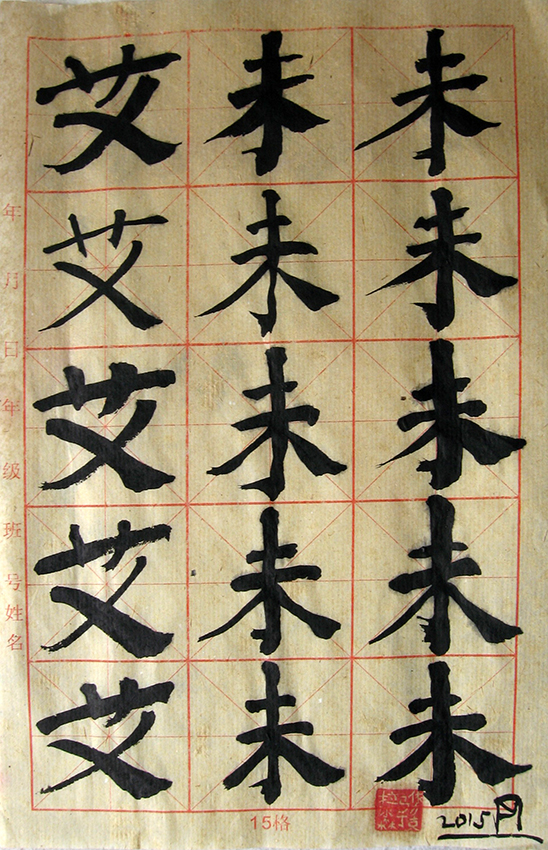 未未未未未
未未未未未
艾艾艾艾艾
年 月 日 年 级 班 号 姓 名
15格
2015